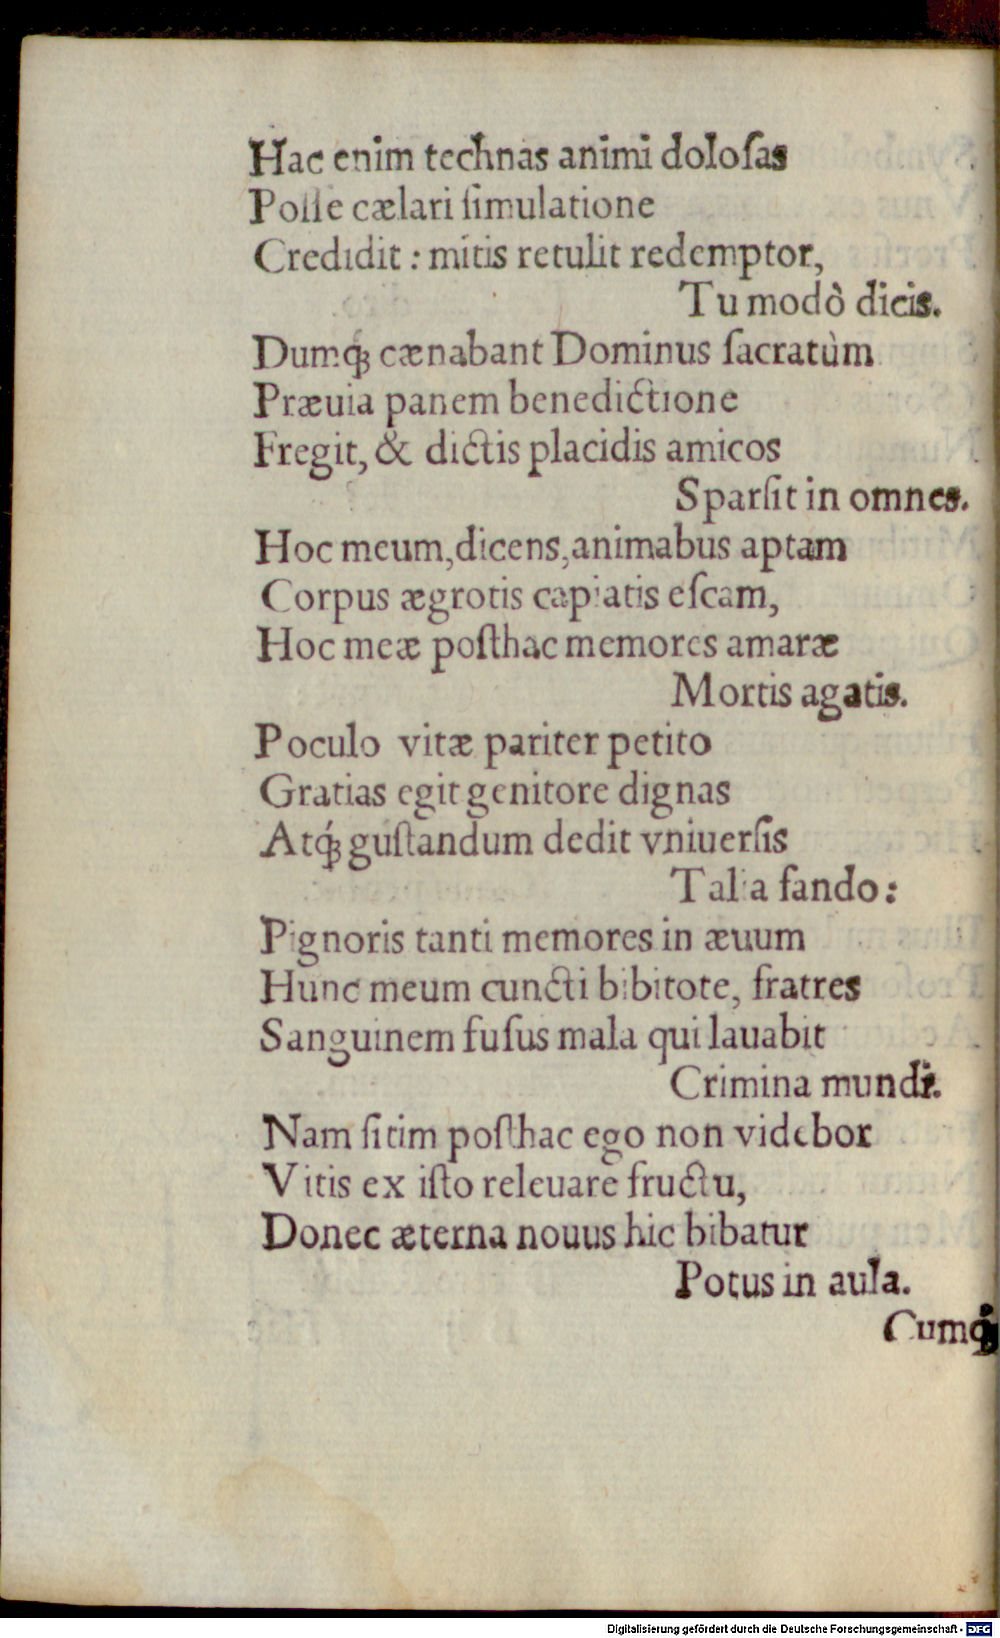 Hac enim technas animi doloſas
Poſſe cælari ſimulatione
Credidit : mitis retulit redemptor,
Tu modò dicis.
Dumq́ꝫ cænabant Dominus ſacratùm
Præuia panem benedictione
Fregit, & dictis placidis amicos
Sparſit in omnes.
Hoc meum, dicens, animabus aptam
Corpus ægrotis capiatis eſcam,
Hoc meæ poſthac memores amaræ
Mortis agatis.
Poculo vitæ pariter petito
Gratias egit genitore dignas
Atq́ꝫ guſtandum dedit vniuerſis
Talia fando:
Pignoris tanti memores in æuum
Hunc meum cuncti bibitote, fratres
Sanguinem fuſus mala qui lauabit
Crimina mundi.
Nam ſitim poſthac ego non videbor
Vitis ex iſto releuare fructu,
Donec æterna nouus hic bibatur
Potus in aula.
Cumq́ꝫ
Digitalisierung gefördert durch die Deutsche Forschungsgemeinschaft - DFG